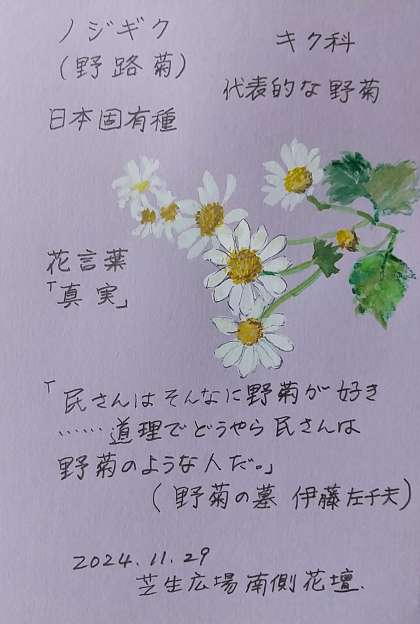 ノジギク
(野路菊)
日本固有種
キク科
代表的な野菊
花言葉
「真実」
「民さんはそんなに野菊が好き
……道理でどうやら民さんは
野菊のような人だ。」
(野菊の墓 伊藤左千夫)
2024.11.29
芝生広場南側花壇.